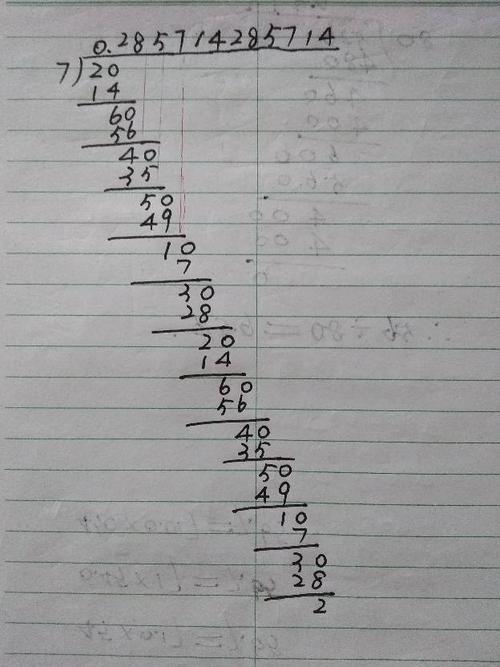 0.285714285714
7)20
14
60
56
40
35
50
49
10
7
30
28
20
14
60
56
40
35
50
49
10
7
30
28
2